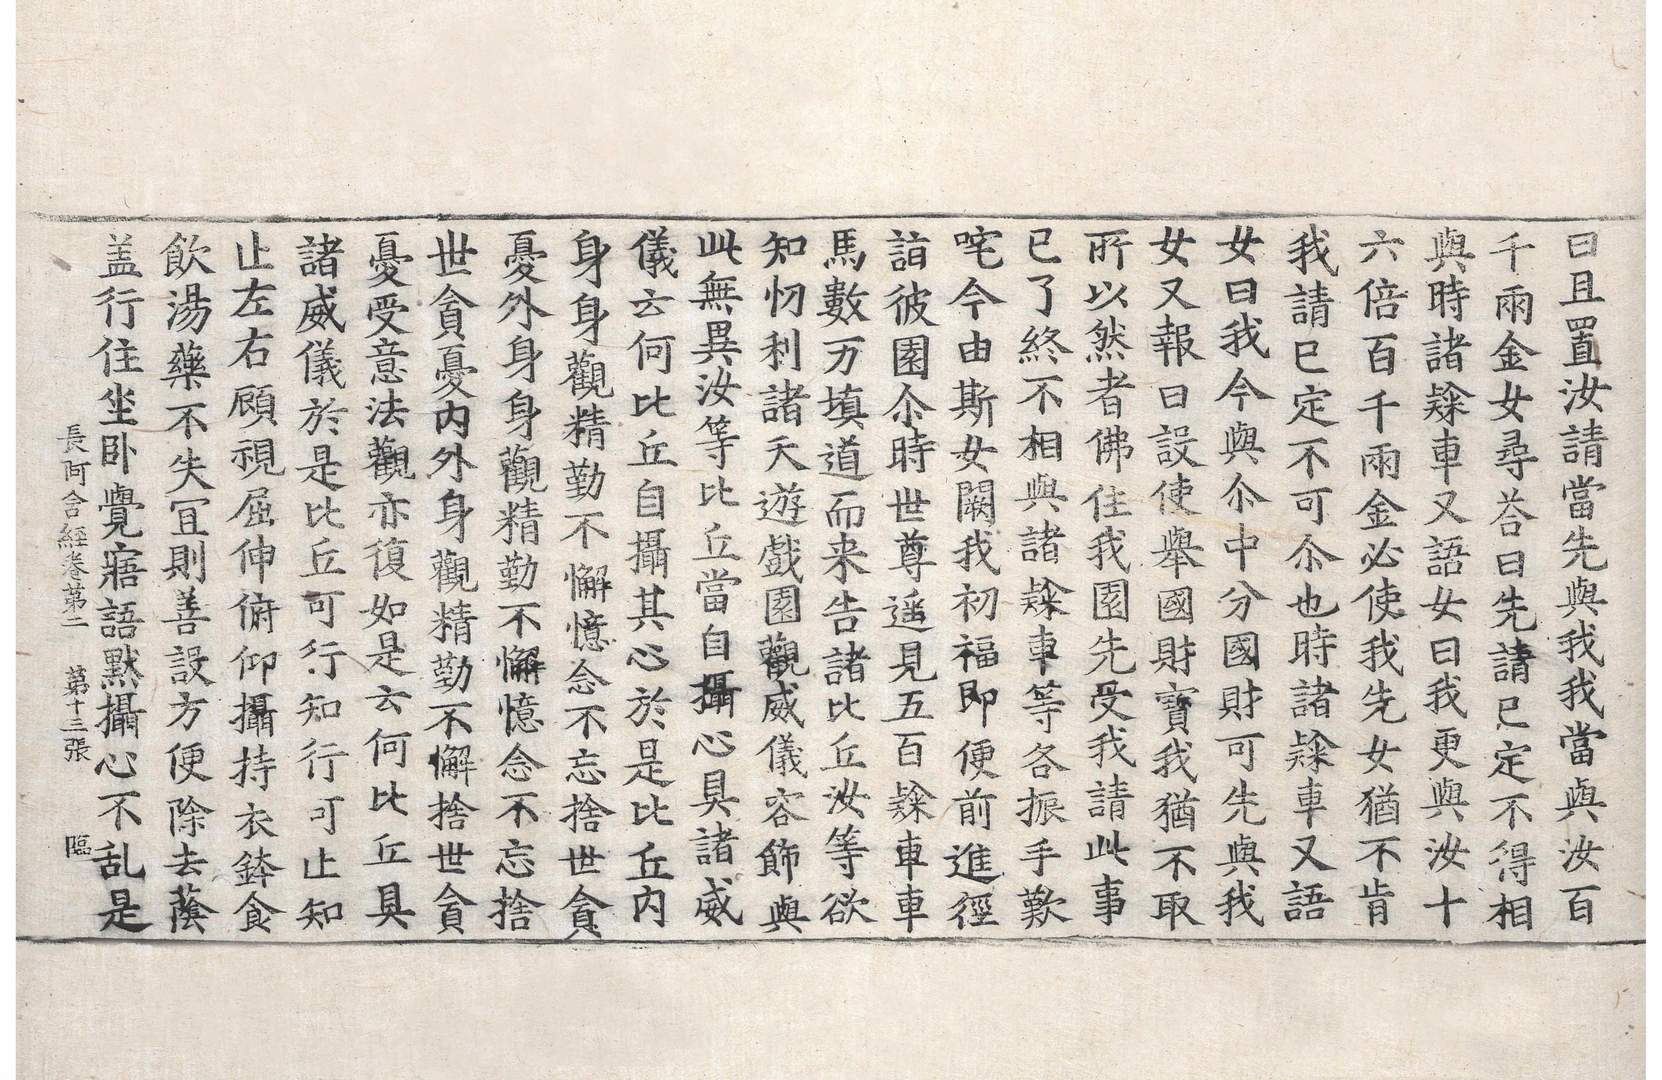 曰且置汝請當先與我我當與汝百
千兩金女尋荅曰先請已定不得相
與時諸𨽻車又語女曰我更與汝十
六倍百千兩金必使我先女猶不肯
我請已定不可尒也時諸𨽻車又語
女曰我今與尒中分國財可先與我
女又報曰設使舉國財寶我猶不取
所以然者佛住我園先受我請此事
已了終不相與諸𨽻車等各振手歎
咤今由斯女闕我初福即便前進徑
詣彼園尒時世尊遥見五百𨽻車車
馬數万填道而来告諸比丘汝等欲
知忉利諸天遊戲園觀威儀容飾與
此無異汝等比丘當自攝心具諸威
儀云何比丘自攝其心於是比丘內
身身觀精勤不懈憶念不忘捨世貪
憂外身身觀精勤不懈憶念不忘捨
世貪憂内外身觀精勤不懈捨世貪
憂受意法觀亦復如是云何比丘具
諸威儀於是比丘可行知行可止知
止左右顧視屈伸俯仰攝持衣鉢食
飲湯藥不失冝則善設方便除去蔭
盖行住坐卧覺寤語默攝心不乱是
長阿含經卷第二　第十三張　臨